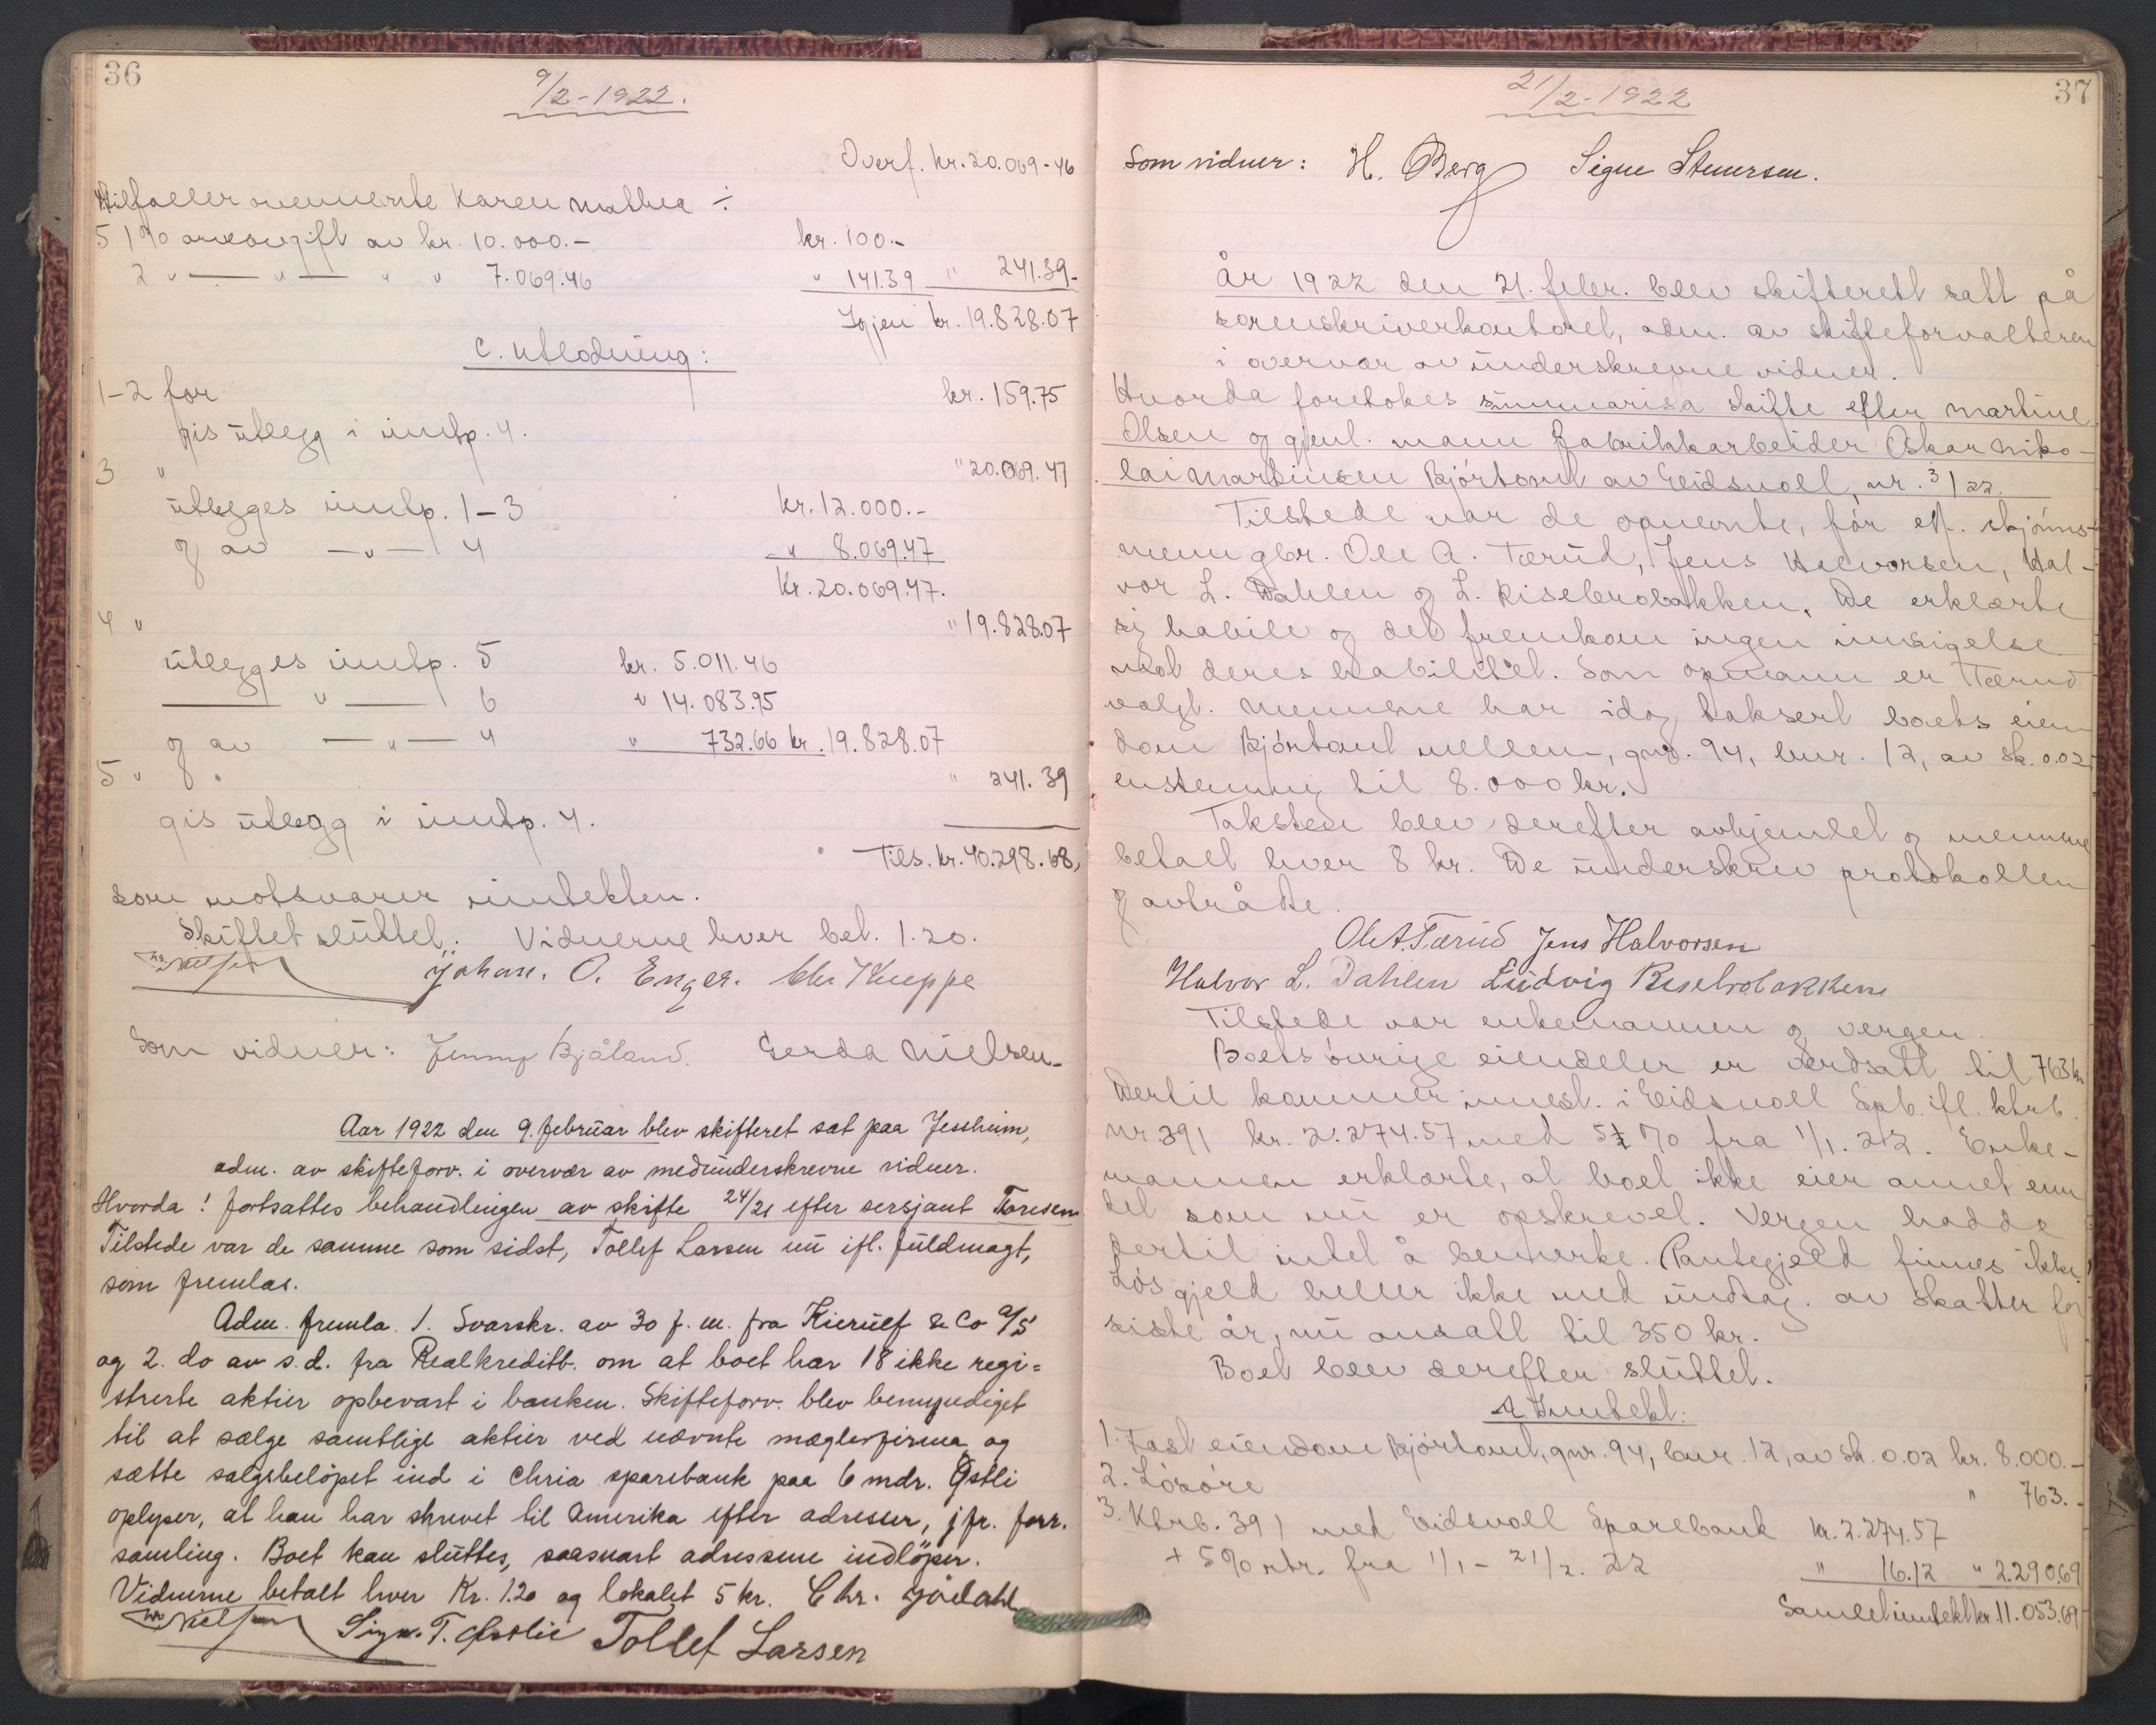 36
9/2-1922.
Overf. kr. 20.069-46
tilfaller ovennevnte Karen Mathea ÷
5 1% arveavgift av kr. 10.000.- kr. 100.-
2 " — " — " " 7.069.46 " 141.39 " 241.39-
Igjen kr. 19.828.07
C. Utlodning:
1-2 for kr. 159.75
gis utlegg i inntp. 4.
3 " " 20.069.47
utlegges inntp. 1-3 kr. 12.000.-
og av — " — 4 " 8.069.47
Kr. 20.069.47.
4 " " 19.828.07
utlegges inntp. 5 kr. 5.011.46
— " — 6 " 14.083.95
og av — " — 4 " 732.66 kr. 19.828.07
5 " " 241.39
gis utlegg i inntp. 4.
Tils. kr. 40.298.68,
som motsvarer inntekten.
Skiftet sluttet. Vidnerne hver bet. 1.20.
Johan. O. Enger. Chr Kleppe
Som vidner: Jenny Bjåland. Gerda Nielsen-
Aar 1922 den 9. februar blev skifteret sat paa Jessheim,
adm. av skifteforv. i overvær av medunderskrevne vidner.
Hvorda! fortsattes behandlingen av skifte 24/21 efter sersjant Toresen
Tilstede var de samme som sidst, Tollef Larsen nu ifl. fuldmagt,
som fremlas.
Adm. fremla. 1. Svarskr. av 30 f. m. fra Kierulf & Co a/s
og 2. do av s.d. fra Realkreditb. om at boet har 18 ikke regi=
strerte aktier opbevart i banken. Skifteforv. blev bemyndiget
til at sælge samtlige aktier ved nævnte mæglerfirma og
sætte salgsbeløpet ind i Chria sparebank paa 6 mdr. Østli
oplyser, at han har skrevet til Amerika efter adresser, jfr. forr.
samling. Boet kan sluttes, saasnart adressene indløper.
Vidnerne betalt hver Kr. 1.20 og lokalet 5 kr. Chr. Jødahl
Sigv. T. Østlie Tollef Larsen
37
21/2-1922
Som vidner: H. Berg Signe Stenersen.
År 1922 den 21. febr. blev skifterett satt på
sorenskriverkontoret, adm. av skifteforvalteren
i overvær av underskrevne vidner.
Hvorda foretokes summarisk skifte efter Martine
Olsen og gjenl. mann fabrikkarbeider Oskar Niko-
lai Martinsen Bjørtomt av Eidsvoll, nr. 3/22.
Tilstede var de opnevnte, før ett. skjønns-
menn gbr. Ole A. Tærud, Jens Halvorsen, Hal-
vor L. Dahlen og L. Risebrobakken. De erklærte
sig habile og det fremkom ingen innsigelse
mot deres habilitet. Som opmann er Tærud
valgt. Mennene har idag taksert boets eien
dom Bjørtomt mellem, gnr. 94, bnr. 12, av sk. 0.02
enstemmig til 8.000 kr.
Taksten blev derefter avhjemlet og mennene
betalt hver 8 kr. De underskrev protokollen
og avtrådte.
Ole A. Tærud Jens Halvorsen
Halvor L. Dahlen Ludvig Risebrobakken
Tilstede var enkemannen og vergen.
Boets øvrige eiendeler er verdsatt til 763 kr
Dertil kommer innest. i Eidsvoll Spb. ifl. ktrb.
nr. 391 kr. 2.274.57 med 5% fra 1/1. 22. Enke-
mannen erklærte, at boet ikke eier annet enn
det som nu er opskrevet. Vergen hadde
dertil intet å bemerke. Pantegjeld finnes ikke.
Løs gjeld heller ikke med undtag. av skatter for
siste år, nu ansatt til 350 kr.
Boet blev derefter sluttet.
A. Inntekt:
1. Fast eiendom Bjørtomt, gnr. 94, bnr. 12, av sk. 0.02 kr. 8.000.-
2. Løsøre " 763.-
3. Ktrb. 391 med Eidsvoll Sparebank kr. 2.274.57
+ 5% rtr. fra 1/1 - 21/2. 22 " 16.12 " 2.290.69
Samlet inntekt kr. 11.053.69